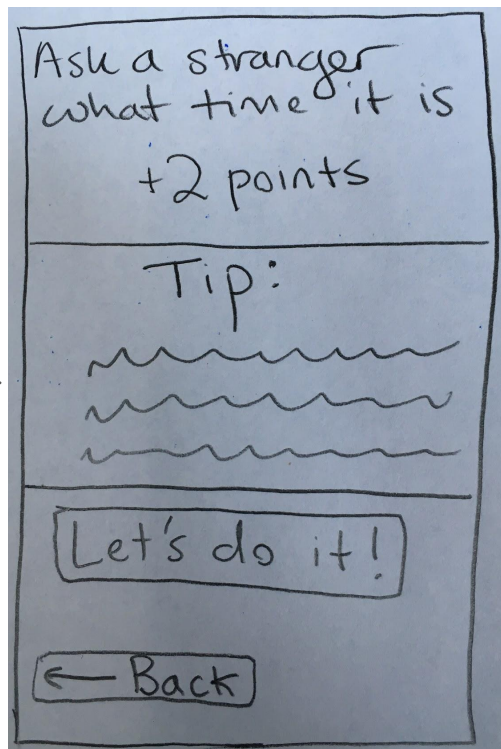 Ask a stranger
what time it is
+2 points
Tip:
Let's do it!
← Back